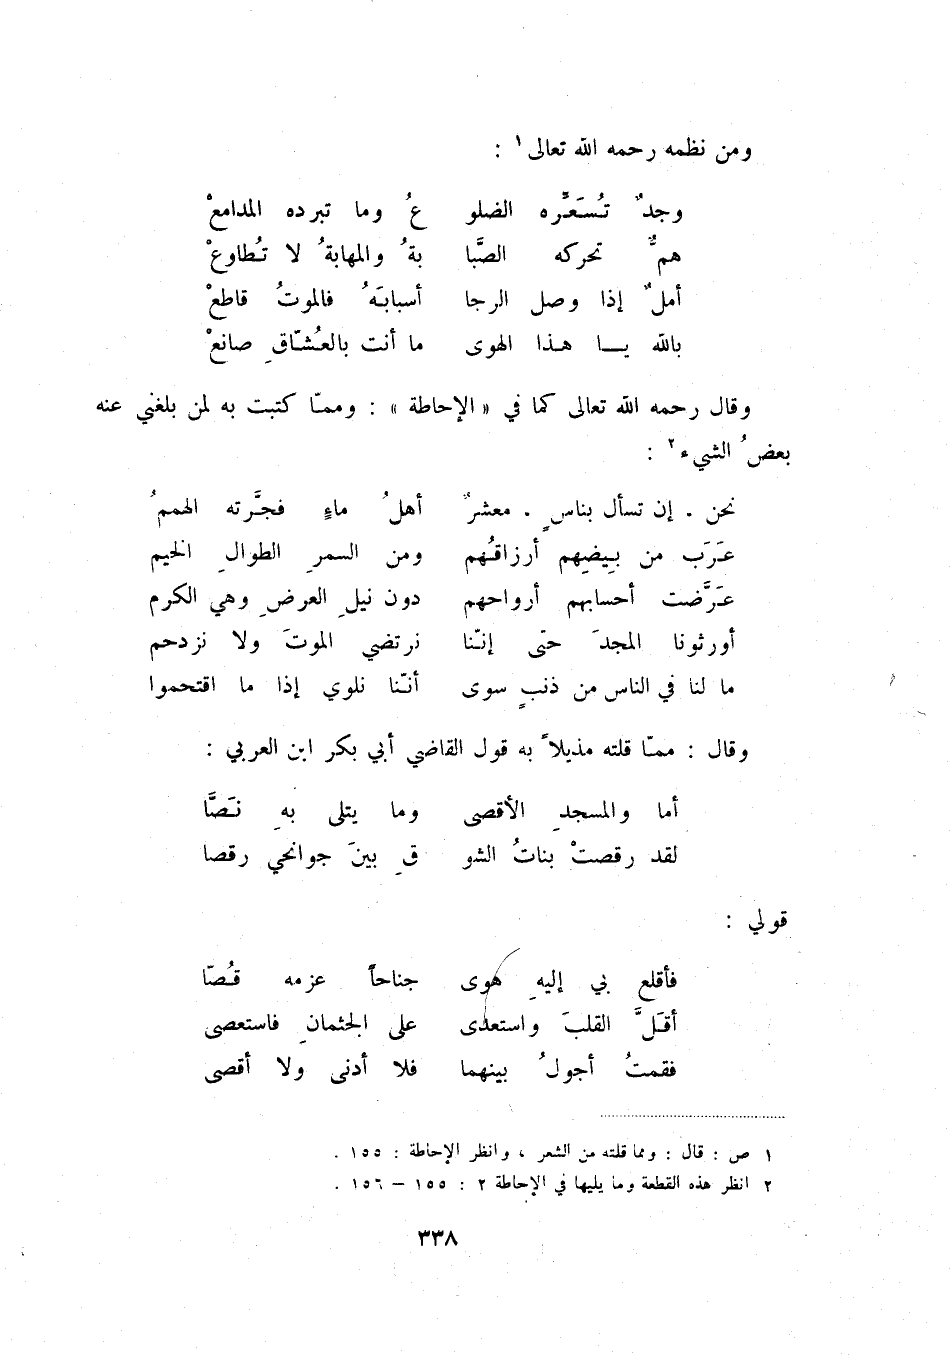 ومن نظمه رحمه الله تعالى ١ :
وجدٌ تُسَعِّره الضلو عُ وما تبرده المدامعْ
همٌّ تحركه الصَّبا بةُ والمهابةُ لا تُطاوعْ
أملٌ إذا وصل الرجا أسبابَهُ فالموتُ قاطعْ
بالله يا هذا الهوى ما أنت بالعُشّاقِ صانعْ
وقال رحمه الله تعالى كما في « الإحاطة » : وممّا كتبت به لمن بلغني عنه
بعضُ الشيء ٢ :
نحن . إن تسأل بناسٍ . معشرٌ أهلُ ماءٍ فجَّرته الهممُ
عَرَب من بِيضِهم أرزاقُهم ومن السمرِ الطوالِ الخيم
عَرَّضت أحسابهم أرواحهم دون نيلِ العرضِ وهي الكرم
أورثونا المجدَ حتّى إنّنا نرتضي الموتَ ولا نزدحم
ما لنا في الناس من ذنبٍ سوى أنّنا نلوي إذا ما اقتحموا
وقال : ممّا قلته مذيلاً به قول القاضي أبي بكر ابن العربي :
أما والمسجدِ الأقصى وما يتلى بهِ نَصَّا
لقد رقصتْ بناتُ الشو قِ بينَ جوانحي رقصا
قولي :
فأقلع بي إليهِ هوى جناحاً عزمه قُصّا
أقلَّ القلبَ واستعدى على الجثمانِ فاستعصى
فقمتُ أجولُ بينهما فلا أدنى ولا أقصى
١ ص : قال : ومما قلته من الشعر ، وانظر الإحاطة : ١٥٥ .
٢ انظر هذه القطعة وما يليها في الإحاطة ٢ : ١٥٥ – ١٥٦ .
٣٣٨